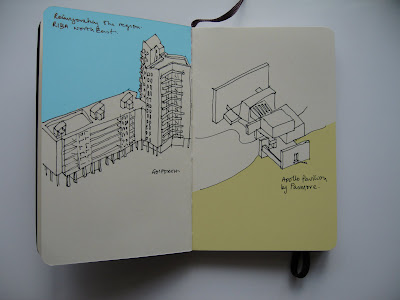 the region.
RIBA North East.
Apollo Pavilion
by Pasmore.